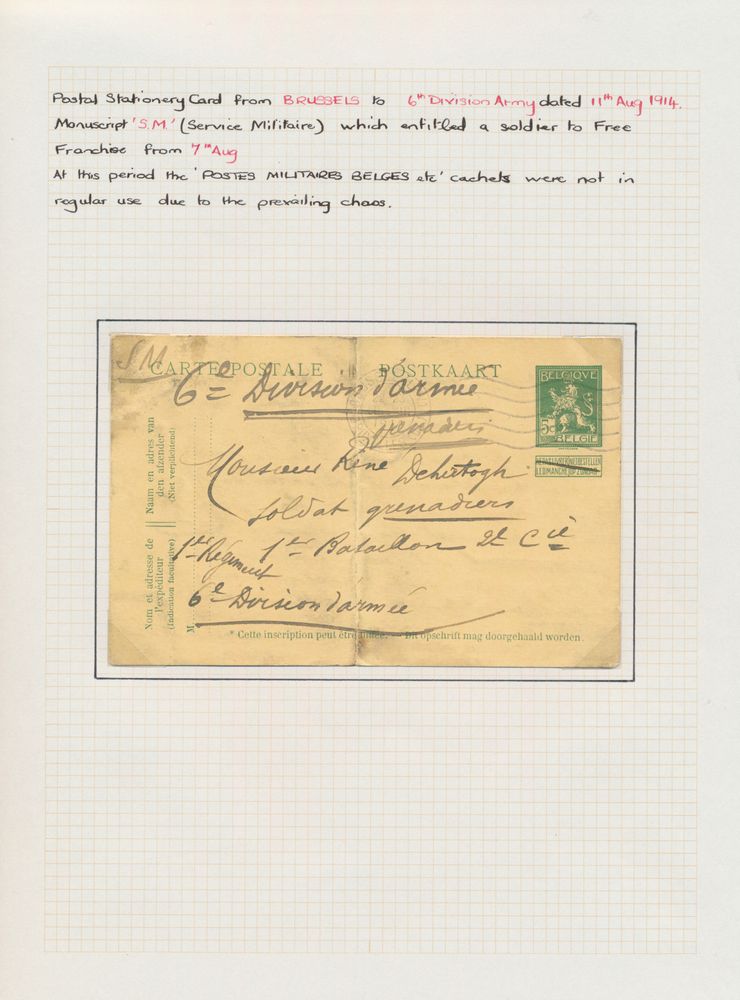 Postal Stationery Card from BRUSSELS to 6th Division Army dated 11th Aug 1914.
Manuscript 'S.M.' (Service Militaire) which entitled a soldier to Free
Franchise from 7th Aug
At this period the 'POSTES MILITAIRES BELGES etc' cachets were not in
regular use due to the prevailing chaos.
S.M.
CARTE POSTALE POSTKAART
BELGIQUE
5c
BELGIE
NE PAS LIVRER LE DIMANCHE
6e Division d'armée
Monsieur Réné Dehertogh
Soldat grenadiers
1er Régiment 1er Bataillon 2e Cie
6e Division d'armée
Naam en adres van
den afzender
(Niet verplichtend)
Nom et adresse de
l'expéditeur
(Indication facultative)
M
* Cette inscription peut être biffée. — Dit opschrift mag doorgehaald worden.